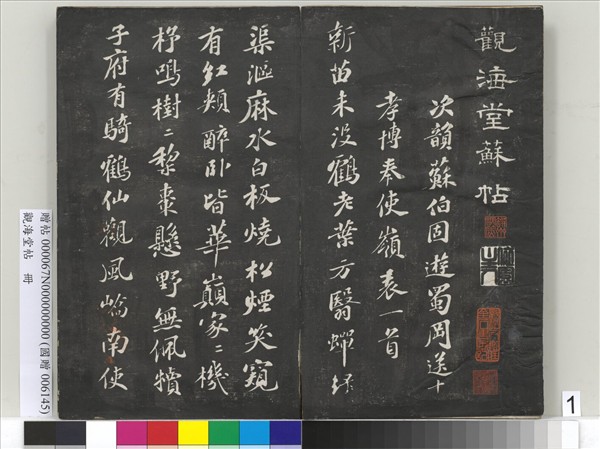 觀海堂蘇帖
次韻蘇伯固遊蜀岡送
孝博奉使嶺表一首
新苗未沒鶴老葉方翳蟬綠
渠漚麻水白板燒松煙笑窺
有紅頰醉卧皆華巔家〻機
杼鳴樹〻黎棗懸野無佩犢
子府有騎鶴仙觀風嶠南使
贈帖 000067N000000000 (國贈 006145)
觀海堂帖 冊
1